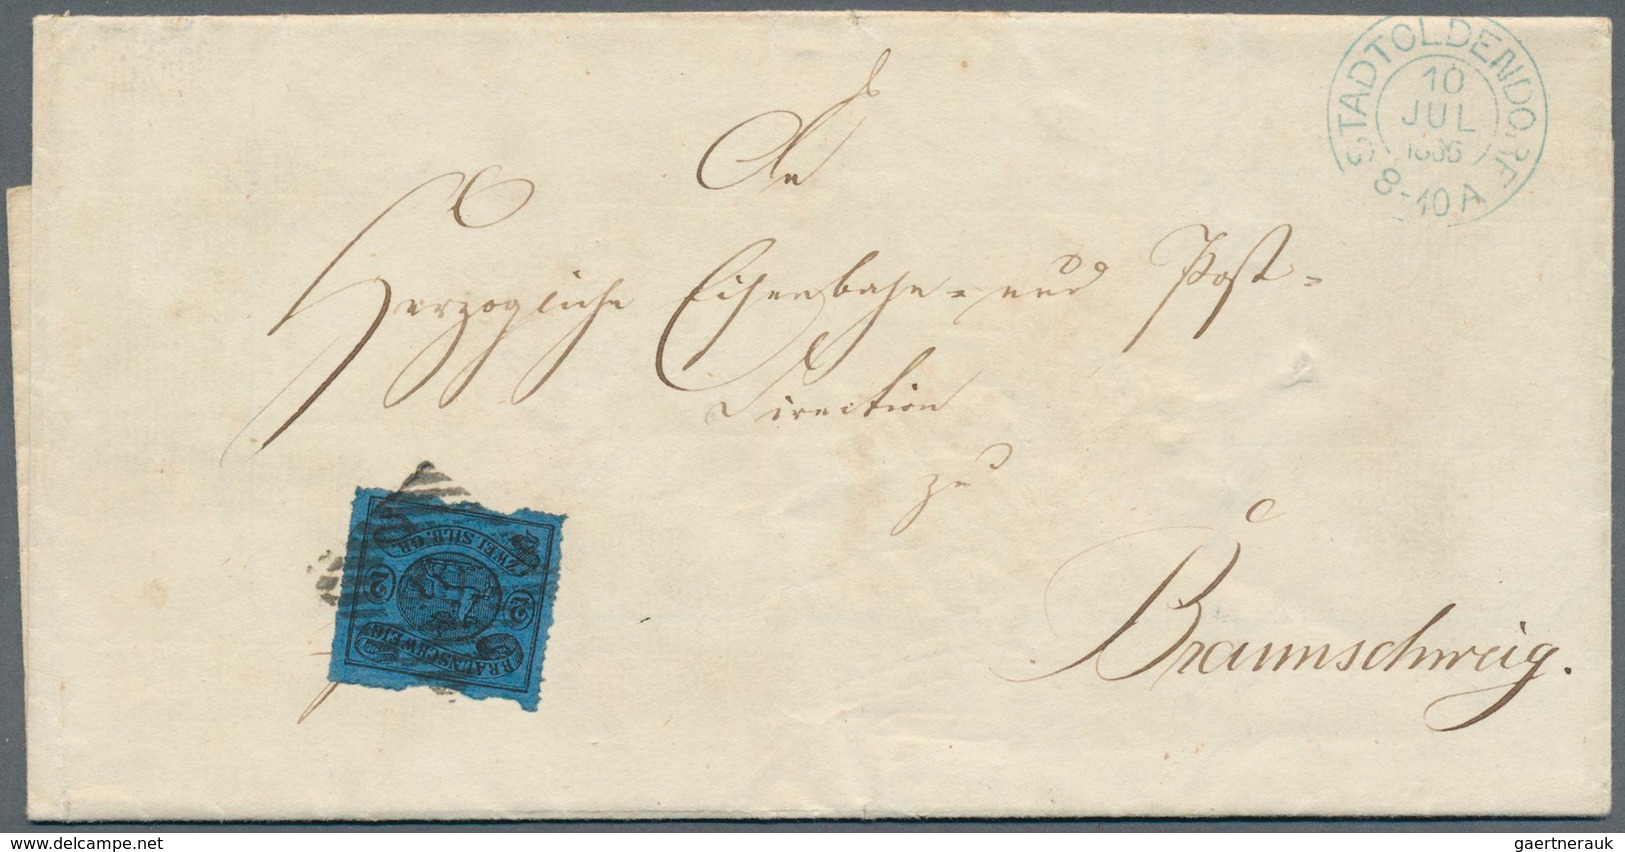 STADTOLDENDORF
10
JUL
1866
8-10 A
An
Herzogliche Eisenbahn- und Post-
Direction
zu
Braunschweig.
ZWEI SILB. GR.
2 2
BRAUNSCHWEIG
delcampe.net
gaertnerauk